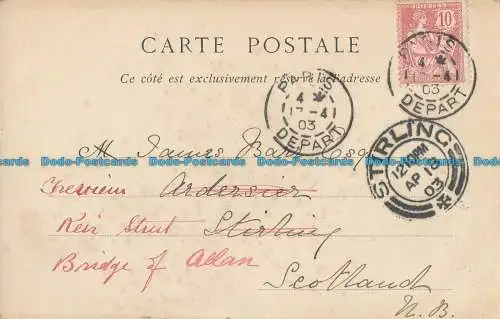 CARTE POSTALE
Ce côté est exclusivement réservé à l'adresse
POSTES
10
PARIS
4
17 -4
03
DEPART
PARIS
4
17 -4
03
DEPART
STIRLING
12 PM
AP 18
03
M James
Ardersier
Keir Street Stirling
Bridge of Allan
Scotland
N.B.
Dodo-Postcards Dodo-Postcards Dodo-Postcards Dodo-Postcards